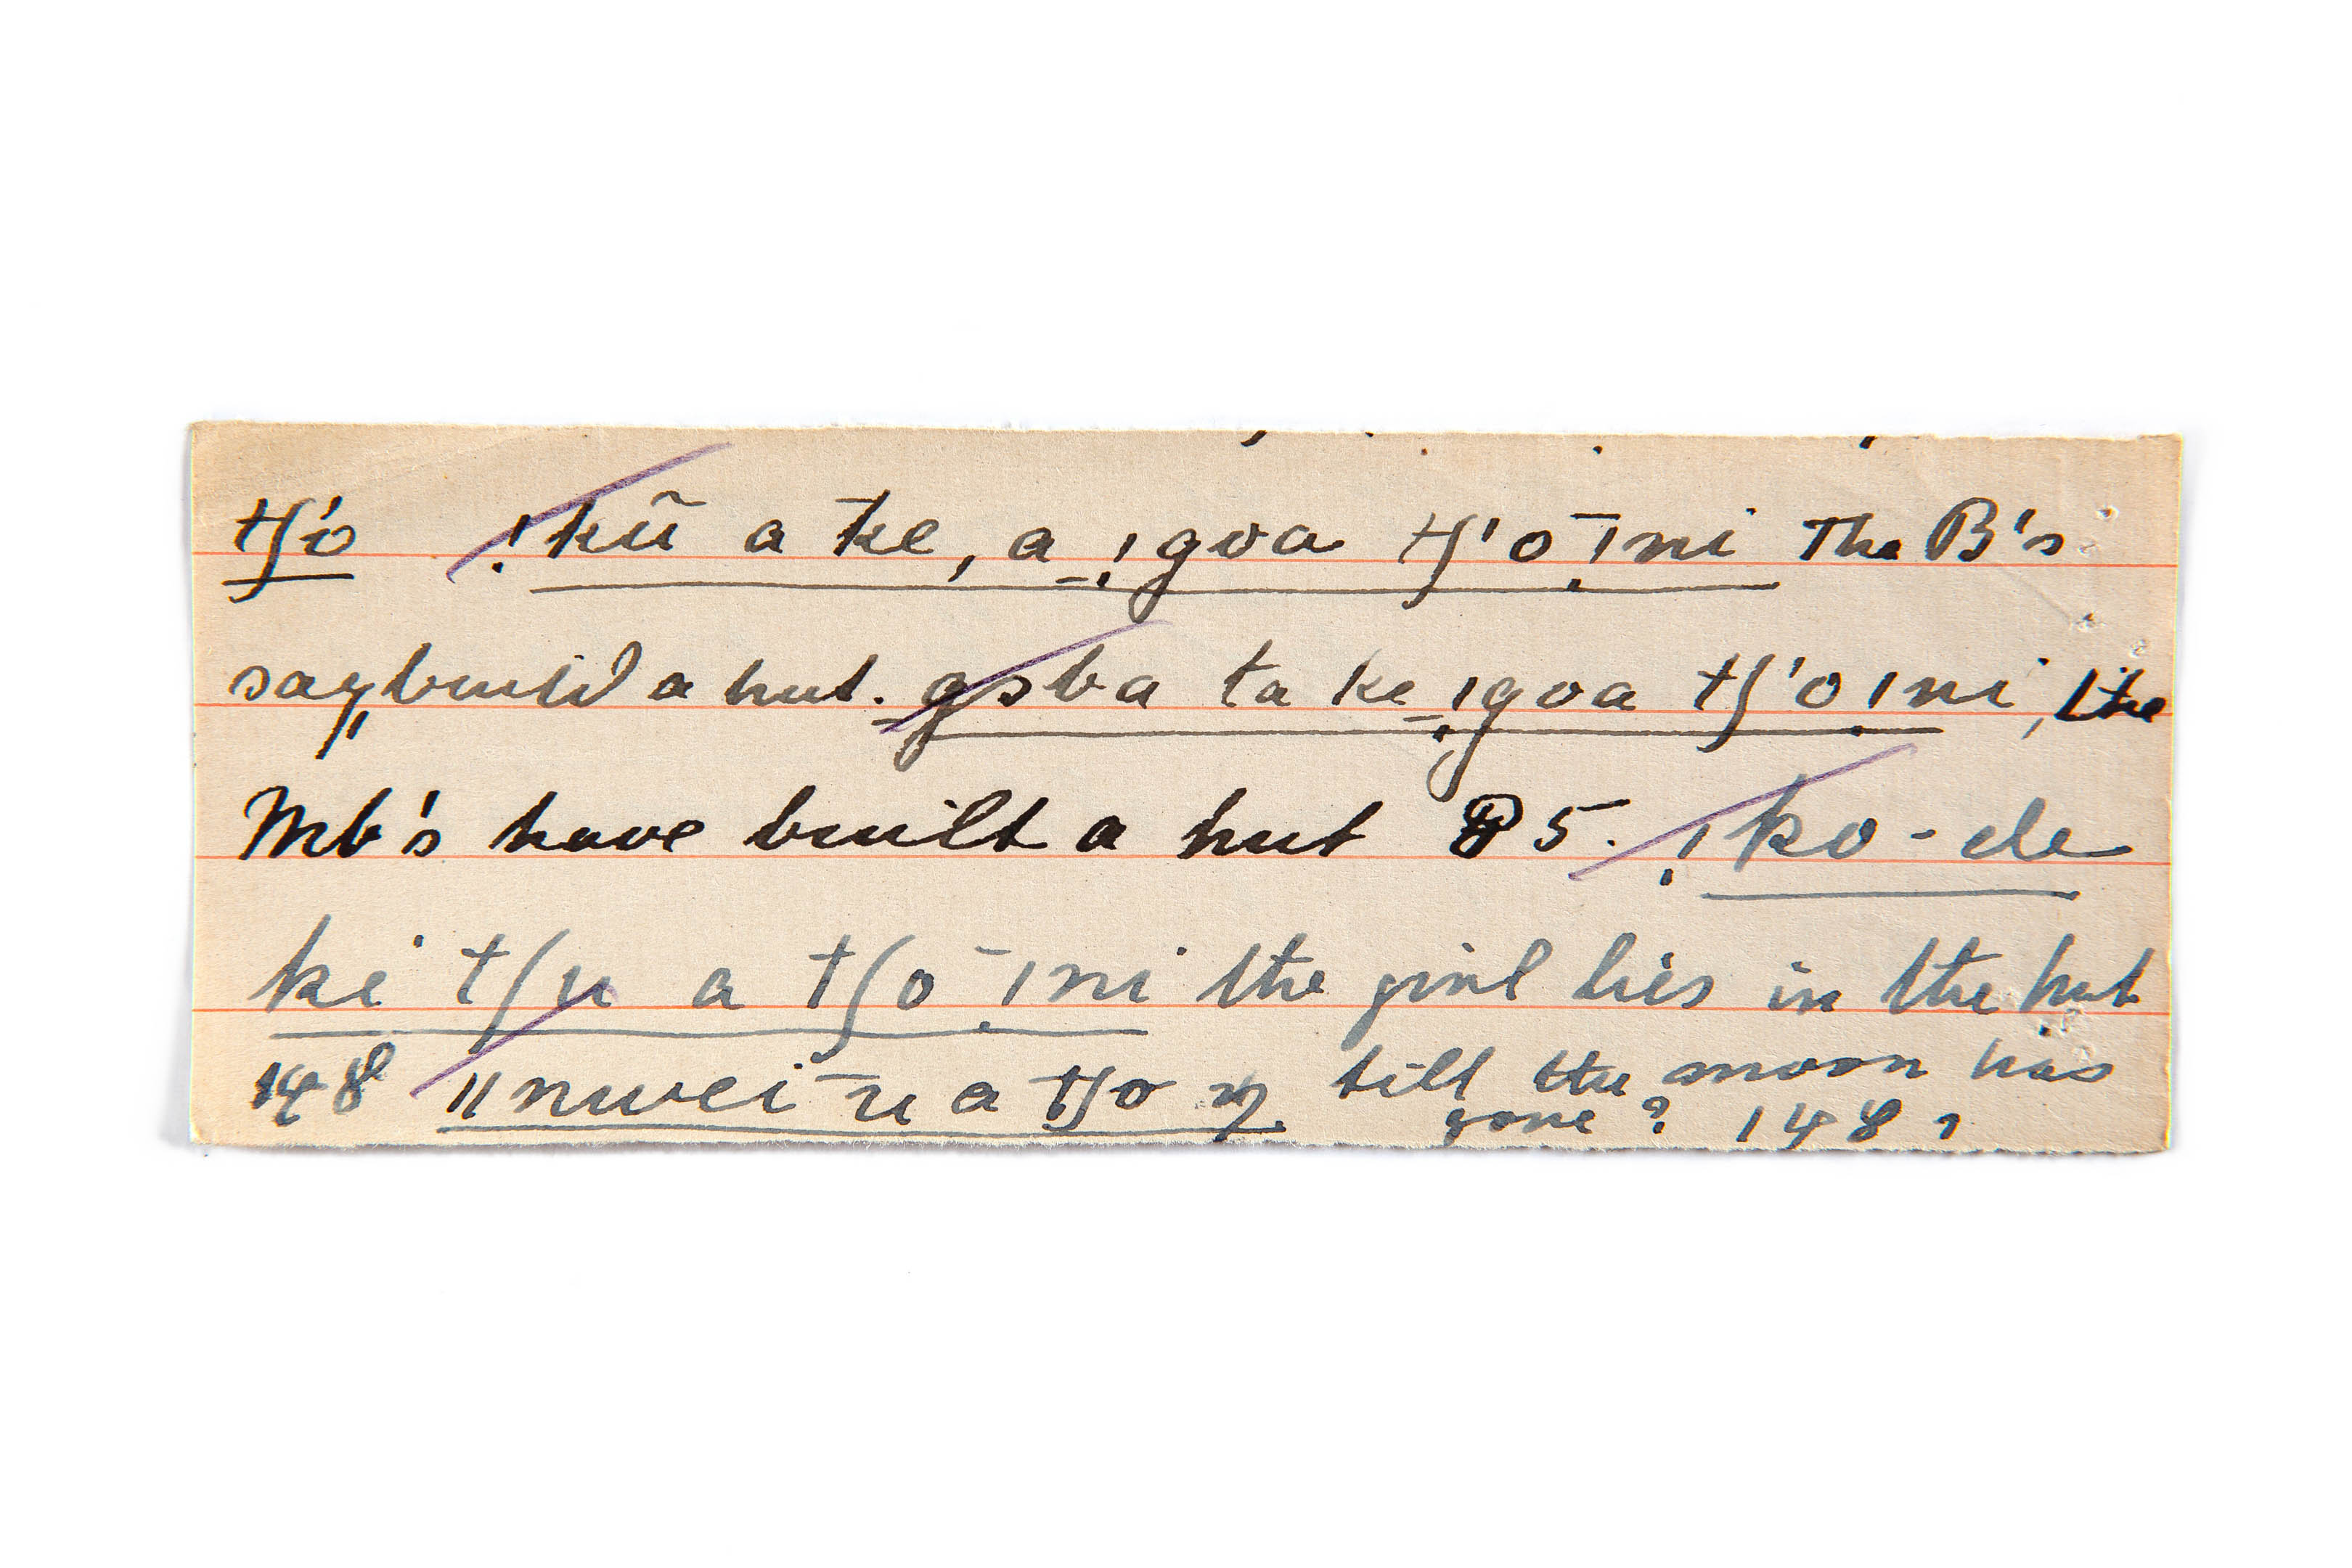 tʃ'o !kũ a k̄e, a_!goa tʃ'o ̄!ni The B's
say build a hut. gɔba ta ke_!goa tʃ'o !ni, the
Mb's have built a hut B5. !ko-de
ki tʃu a tʃo ̄!ni the girl lies in the hut
148 ǁnwei ̄u a tʃo ŋ till the moon has
gone? 148?